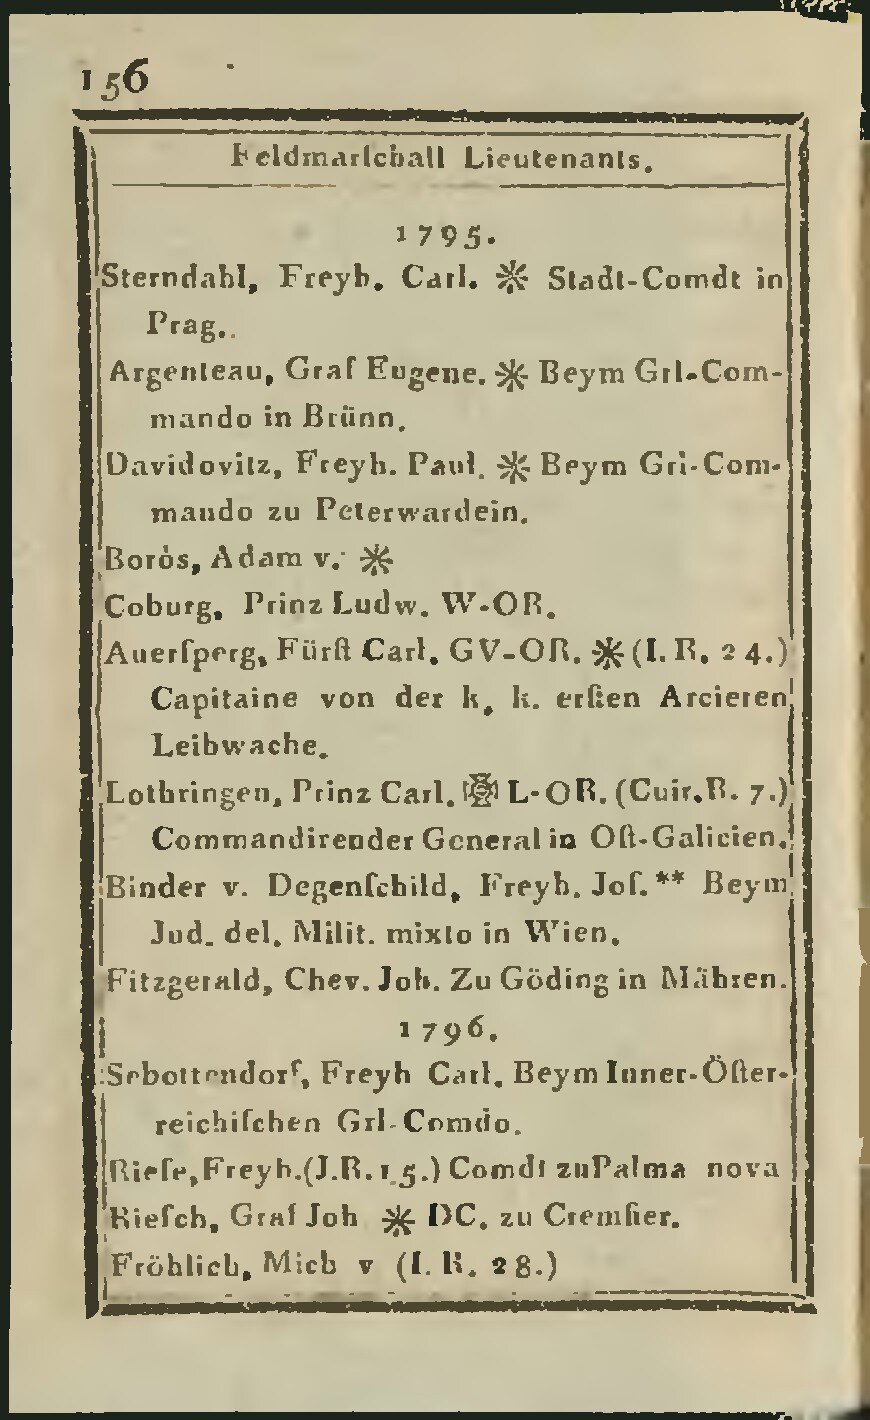 156
Feldmarſchall Lieutenants.
1795.
Sterndahl, Freyh. Carl. ※ Stadt-Comdt in
Prag.
Argenteau, Graf Eugene. ※ Beym Grl-Com-
mando in Brünn.
Davidovitz, Freyh. Paul. ※ Beym Grl-Com-
mando zu Peterwardein.
Boròs, Adam v. ※
Coburg, Prinz Ludw. W-OR.
Auerſperg, Fürſt Carl. GV-OR. ※ (I. R. 24.)
Capitaine von der k. k. erſten Arcieren
Leibwache.
Lothringen, Prinz Carl. L-OR. (Cuir. R. 7.)
Commandirender General in Oſt-Galicien.
Binder v. Degenſchild, Freyh. Joſ. ** Beym
Jud. del. Milit. mixto in Wien.
Fitzgerald, Chev. Joh. Zu Göding in Mähren.
1796.
Sebottendorf, Freyh Carl. Beym Inner-Öſter-
reichiſchen Grl-Comdo.
Rieſe, Freyh. (J. R. 15.) Comdt zu Palma nova
Rieſch, Graf Joh ※ DC. zu Cremſier.
Fröhlich, Mich v (I. R. 28.)